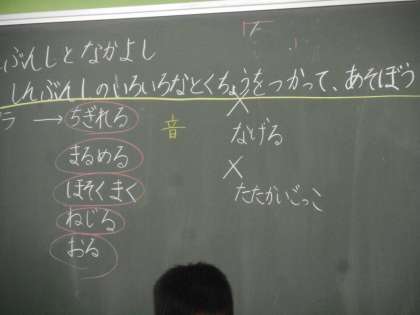 ぶんしとなかよし
しんぶんしのいろいろなとくちょうをつかって、あそぼう
ラ → ちぎれる
音
×
なげる
まるめる
×
ほそくまく
たたかいごっこ
ねじる
おる